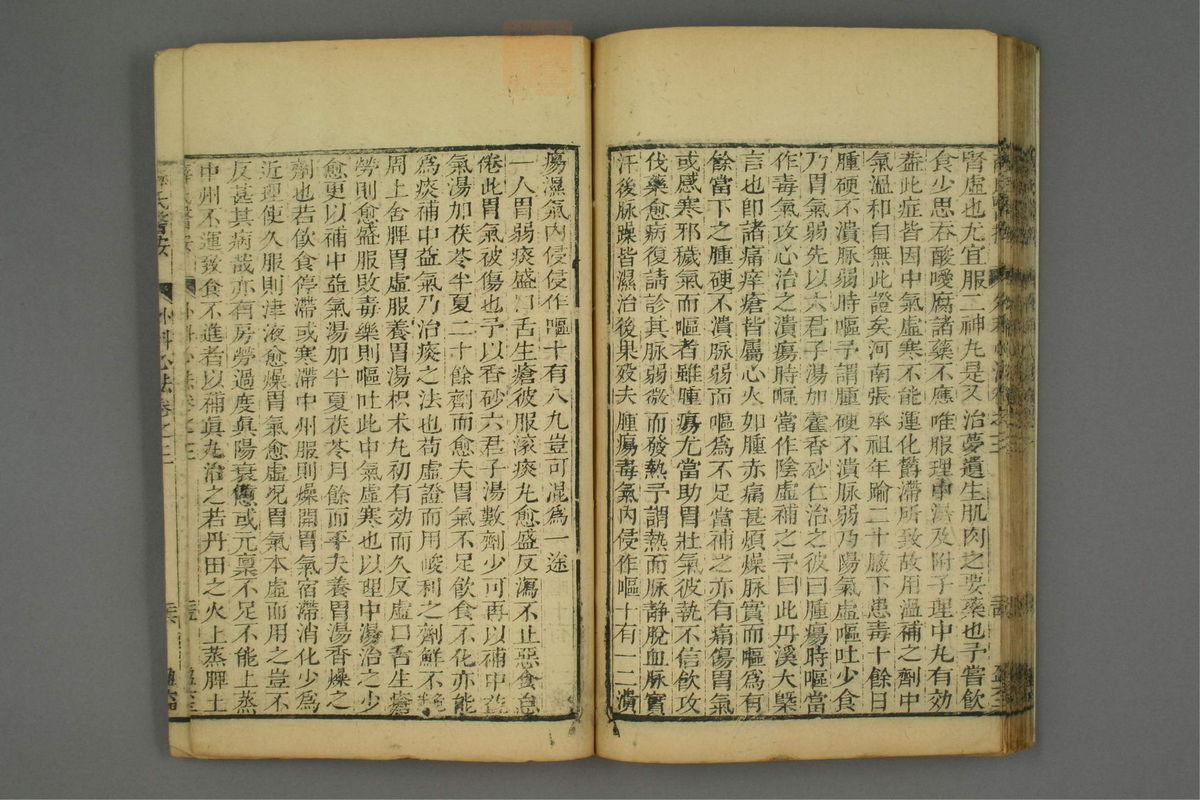 腎虛也尤宜服二神丸是又治夢遺生肌肉之要藥也予嘗飲
食少思吞酸噯腐諸藥不應唯服理中湯及附子理中丸有効
蓋此症皆因中氣虛寒不能運化欝滯所致故用溫補之劑中
氣溫和自無此證矣河南張承祖年踰二十腋下患毒十餘日
腫硬不潰脉弱時嘔予謂腫硬不潰脉弱乃陽氣虛嘔吐少食
乃胃氣弱先以六君子湯加藿香砂仁治之彼曰腫瘍時嘔當
作毒氣攻心治之潰瘍時嘔當作陰虛補之予曰此丹溪大槩
言也卽諸痛痒瘡皆屬心火如腫赤痛甚煩燥脉實而嘔爲有
餘當下之腫硬不潰脉弱而嘔爲不足當補之亦有痛傷胃氣
或感寒邪穢氣而嘔者雖腫瘍尤當助胃壯氣彼執不信飲攻
伐藥愈病復請診其脉弱微而發熱予謂熱而脉静脫血脉實
汗後脉躁皆濕治後果歿夫腫瘍毒氣內侵作嘔十有一二潰
瘍濕氣內侵侵作嘔十有八九豈可混爲一途
一人胃弱痰盛口舌生瘡彼服滾痰丸愈盛反瀉不止惡食怠
倦此胃氣被傷也予以香砂六君子湯數劑少可再以補中益
氣湯加茯苓半夏二十餘劑而愈夫胃氣不足飲食不化亦能
爲痰補中益氣乃治痰之法也苟虛證而用峻利之劑鮮不
周上舍脾胃虛服養胃湯枳术丸初有効而久反虛口舌生瘡
勞則愈盛服敗毒藥則嘔吐此中氣虛寒也以理中湯治之少
愈更以補中益氣湯加半夏茯苓月餘而平夫養胃湯香燥之
劑也若飲食停滯或寒滯中州服則燥開胃氣宿滯消化少爲
近理使久服則津液愈燥胃氣愈虛况胃氣本虛而用之豈不
反甚其病哉亦有房勞過度眞陽衰憊或元稟不足不能上蒸
中州不運致食不進者以補眞丸治之若丹田之火上蒸脾土
薛氏醫按 外科心法卷之三